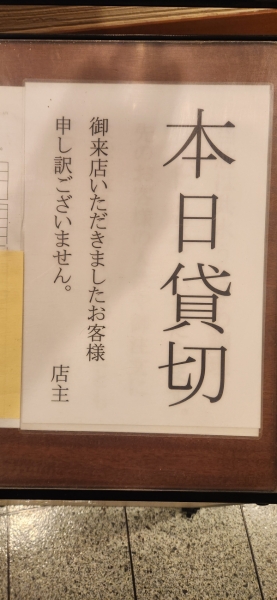 本日貸切
御来店いただきましたお客様
申し訳ございません。
店主